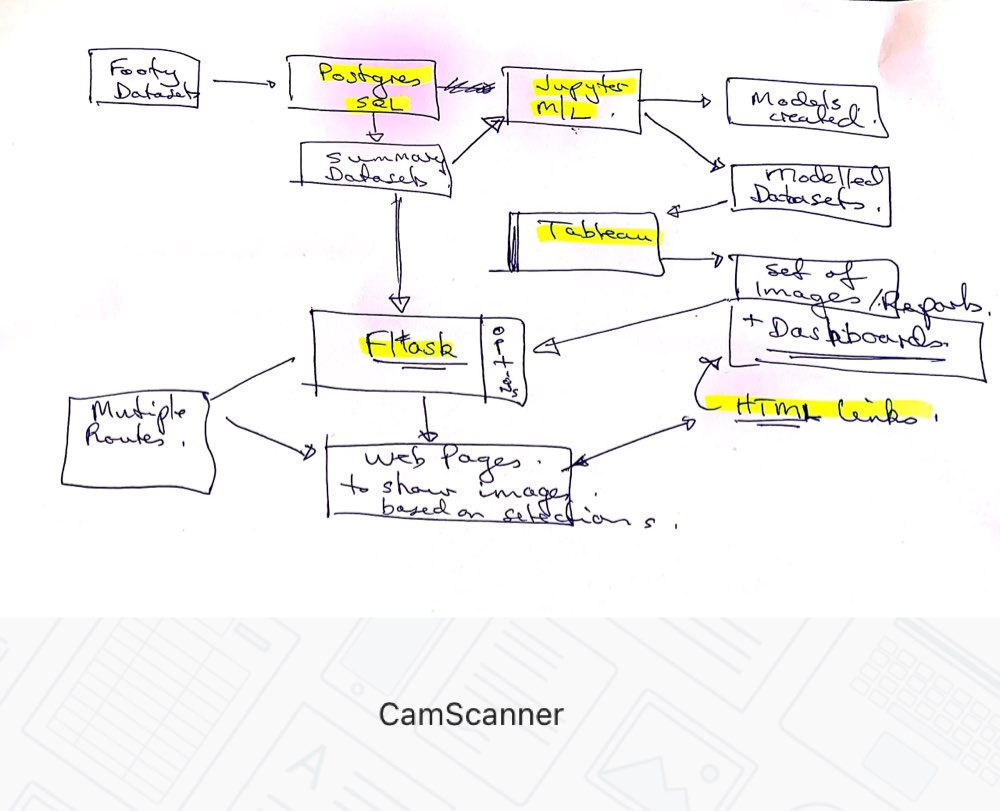 Footy
Datasets
Postgres
SQL
Jupyter
M/L.
Models
created.
Summary
Datasets
Modelled
Datasets.
Tableau
Set of
Images/Reports.
+ Dashboards.
Flask
options
HTML links.
Multiple
Routes.
Web Pages.
to show images
based on selections.
CamScanner